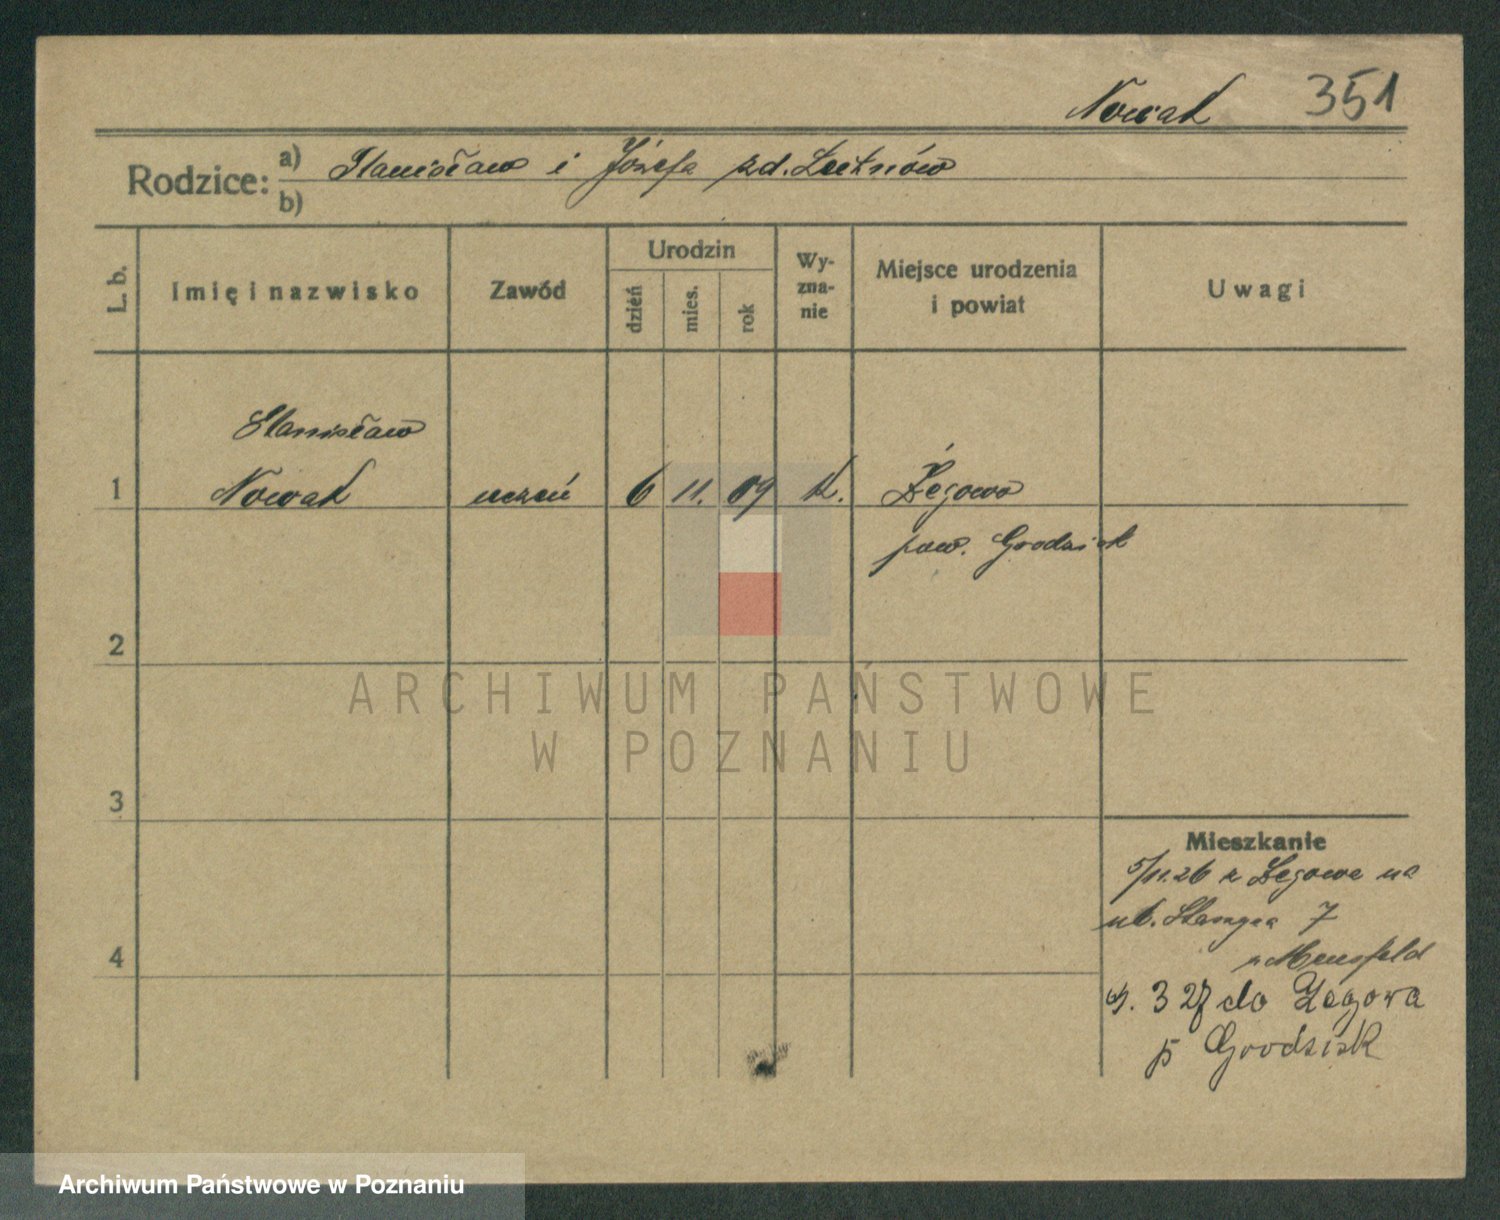 Nowak 351
Rodzice: a) Stanisław i Józefa zd.
b)
L. b.
Imię i nazwisko
Zawód
Urodzin
dzień
mies.
rok
Wy-
zna-
nie
Miejsce urodzenia
i powiat
Uwagi
Stanisław
1 Nowak uczeń 6 11. 09 k. Żegowo
pow. Grodzisk
2
ARCHIWUM PAŃSTWOWE
W POZNANIU
3
Mieszkanie
5/11.26 z Żegowa na
ul. 7
4
3 27 do Żegowa
p Grodzisk
Archiwum Państwowe w Poznaniu